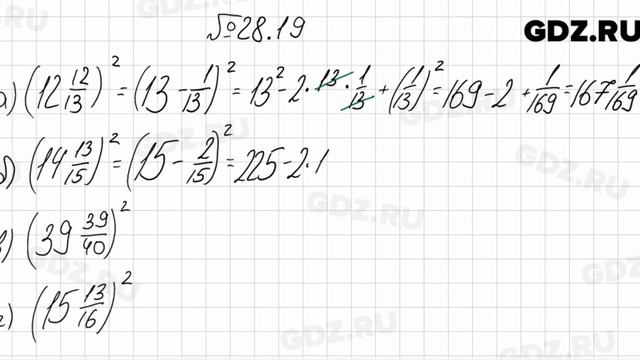 №28.19
GDZ.RU
а) (12 12/13)² = (13 - 1/13)² = 13² - 2 · 13 · 1/13 + (1/13)² = 169 - 2 + 1/169 = 167 1/169
б) (14 13/15)² = (15 - 2/15)² = 225 - 2 · 1
в) (39 39/40)²
г) (15 13/16)²
GDZ.RU
GDZ.RU
GDZ.RU
GDZ.RU
GDZ.RU